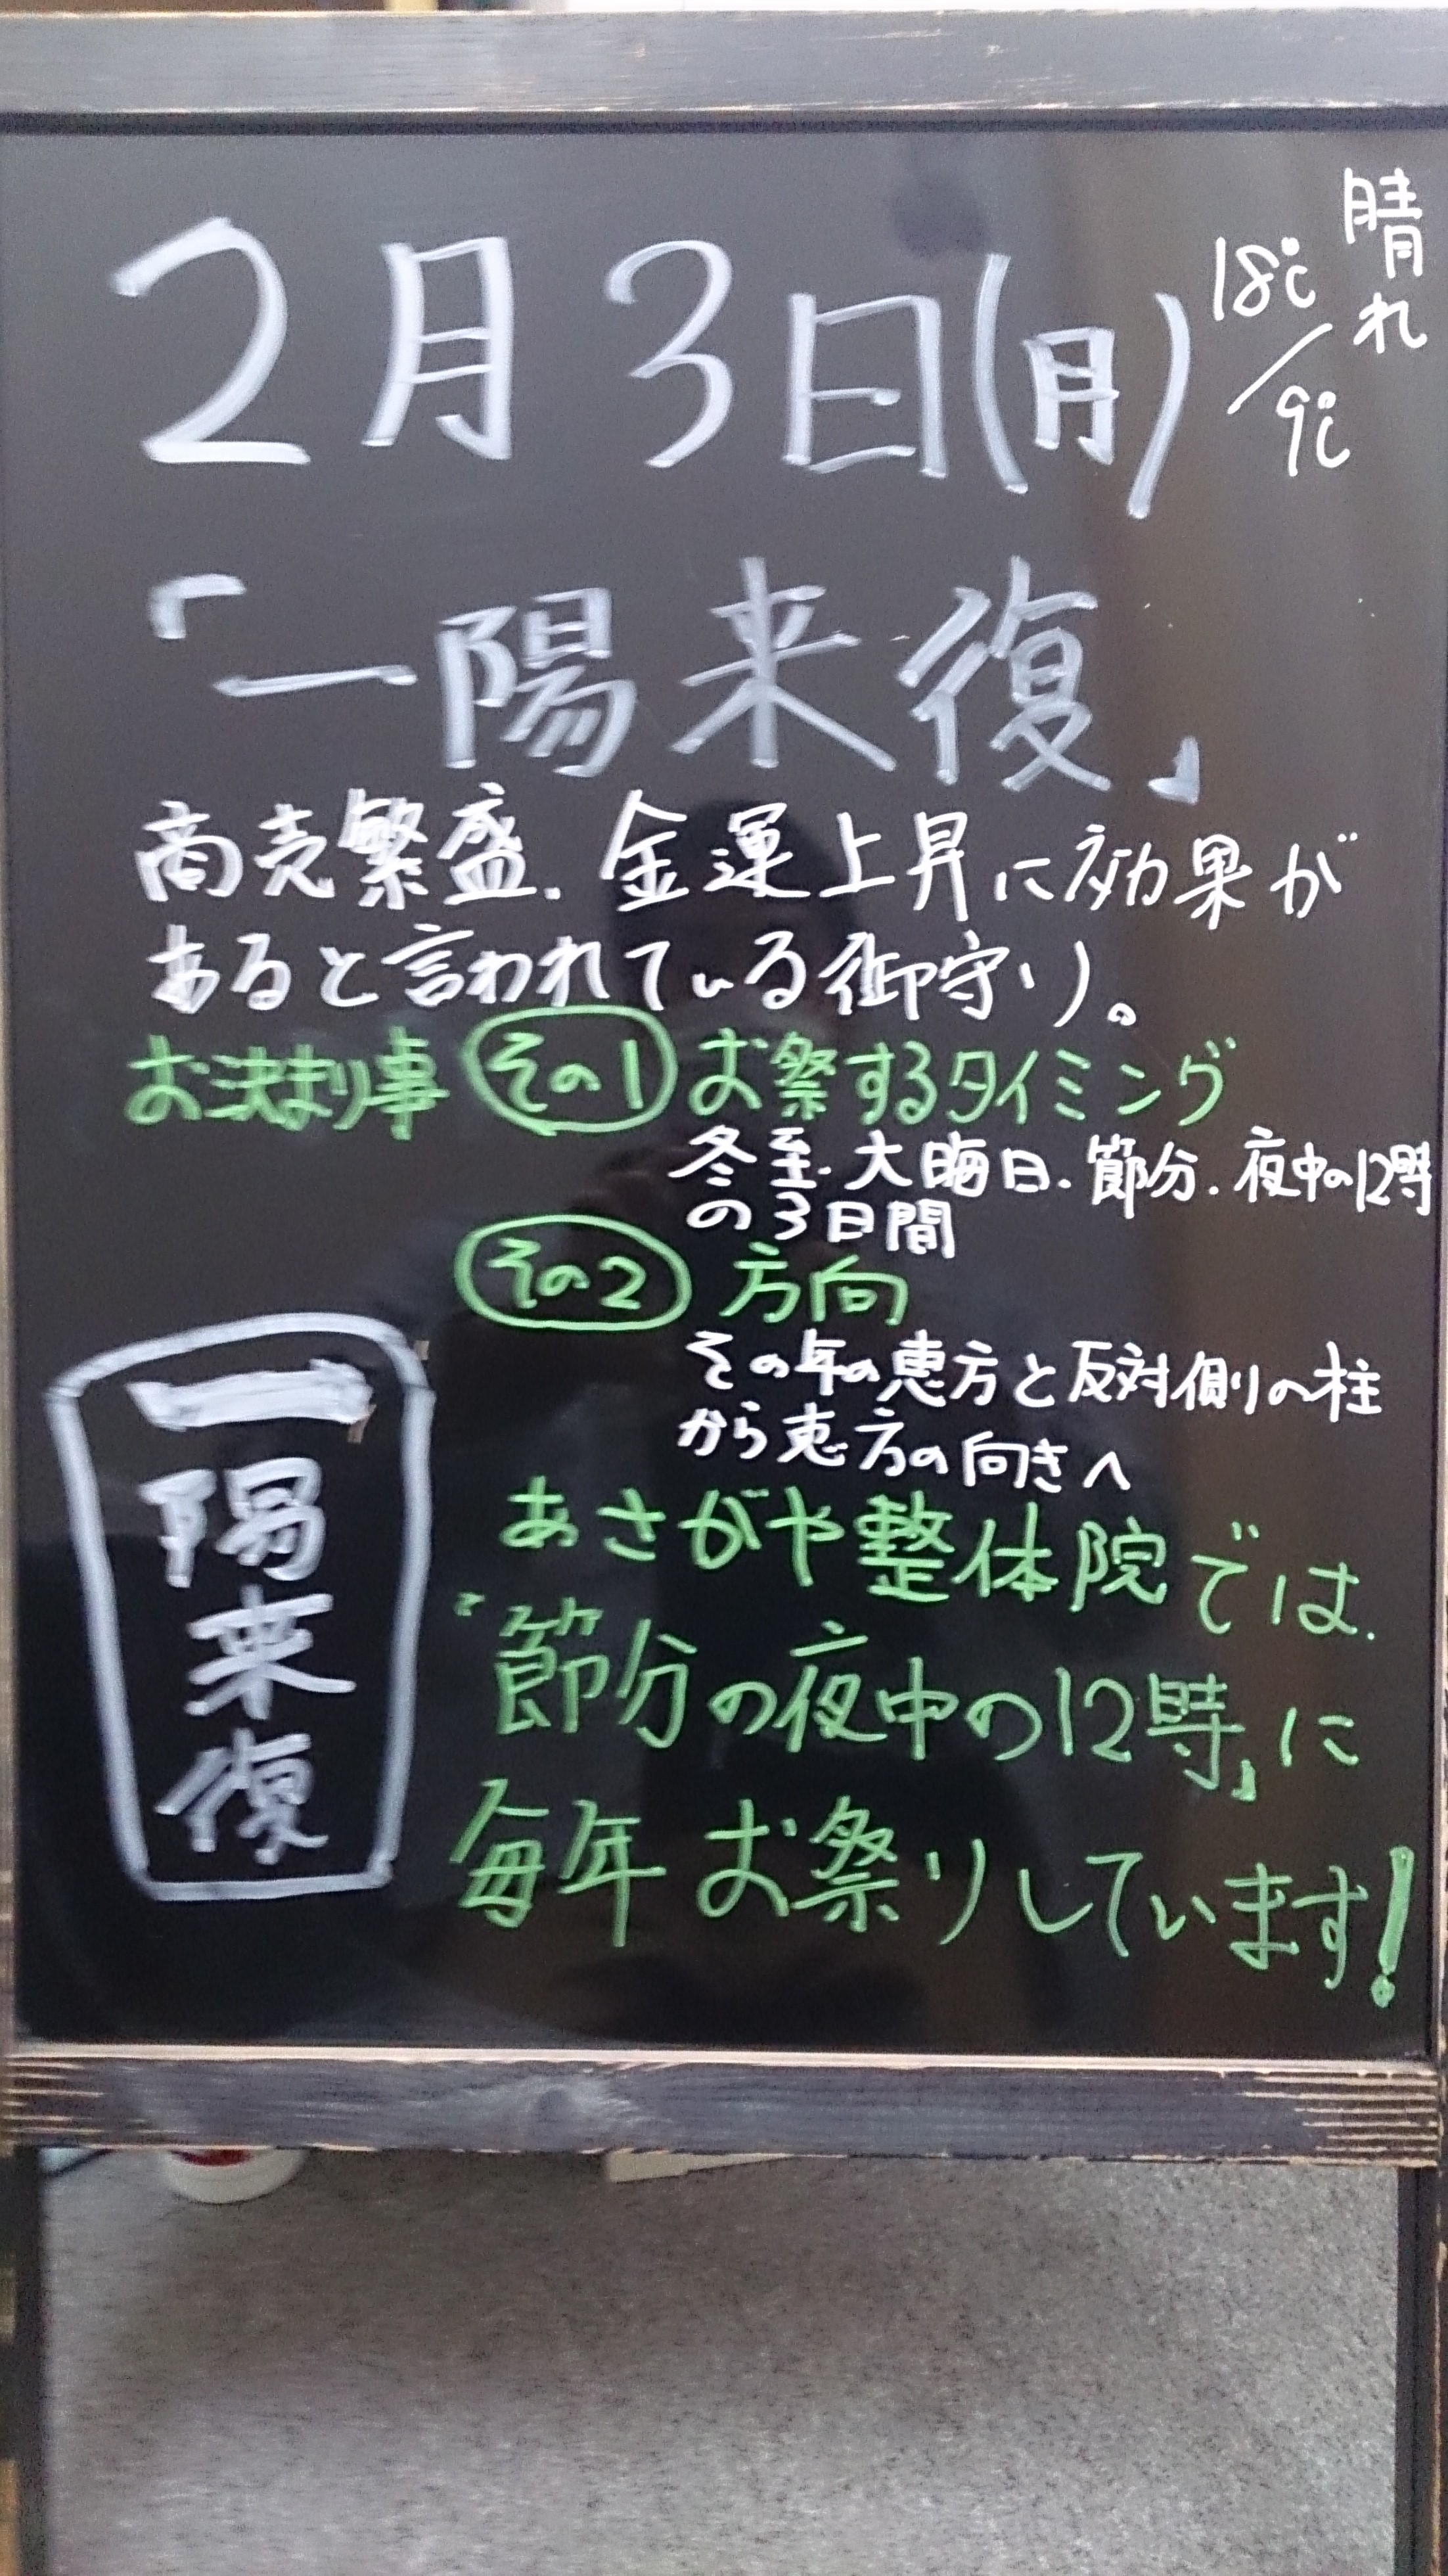 2月3日(月)
晴れ
18℃/9℃
「一陽来復」
商売繁盛、金運上昇に効果が
あると言われている御守り。
お決まり事 その1 お祭するタイミング
冬至、大晦日、節分、夜中の12時
の3日間
その2 方向
その年の恵方と反対側の柱
から恵方の向きへ
一陽来復
あさがや整体院では、
『節分の夜中の12時』に
毎年お祭りしています!